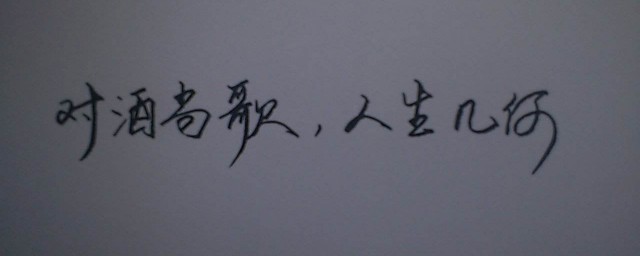 对酒当歌，人生几何